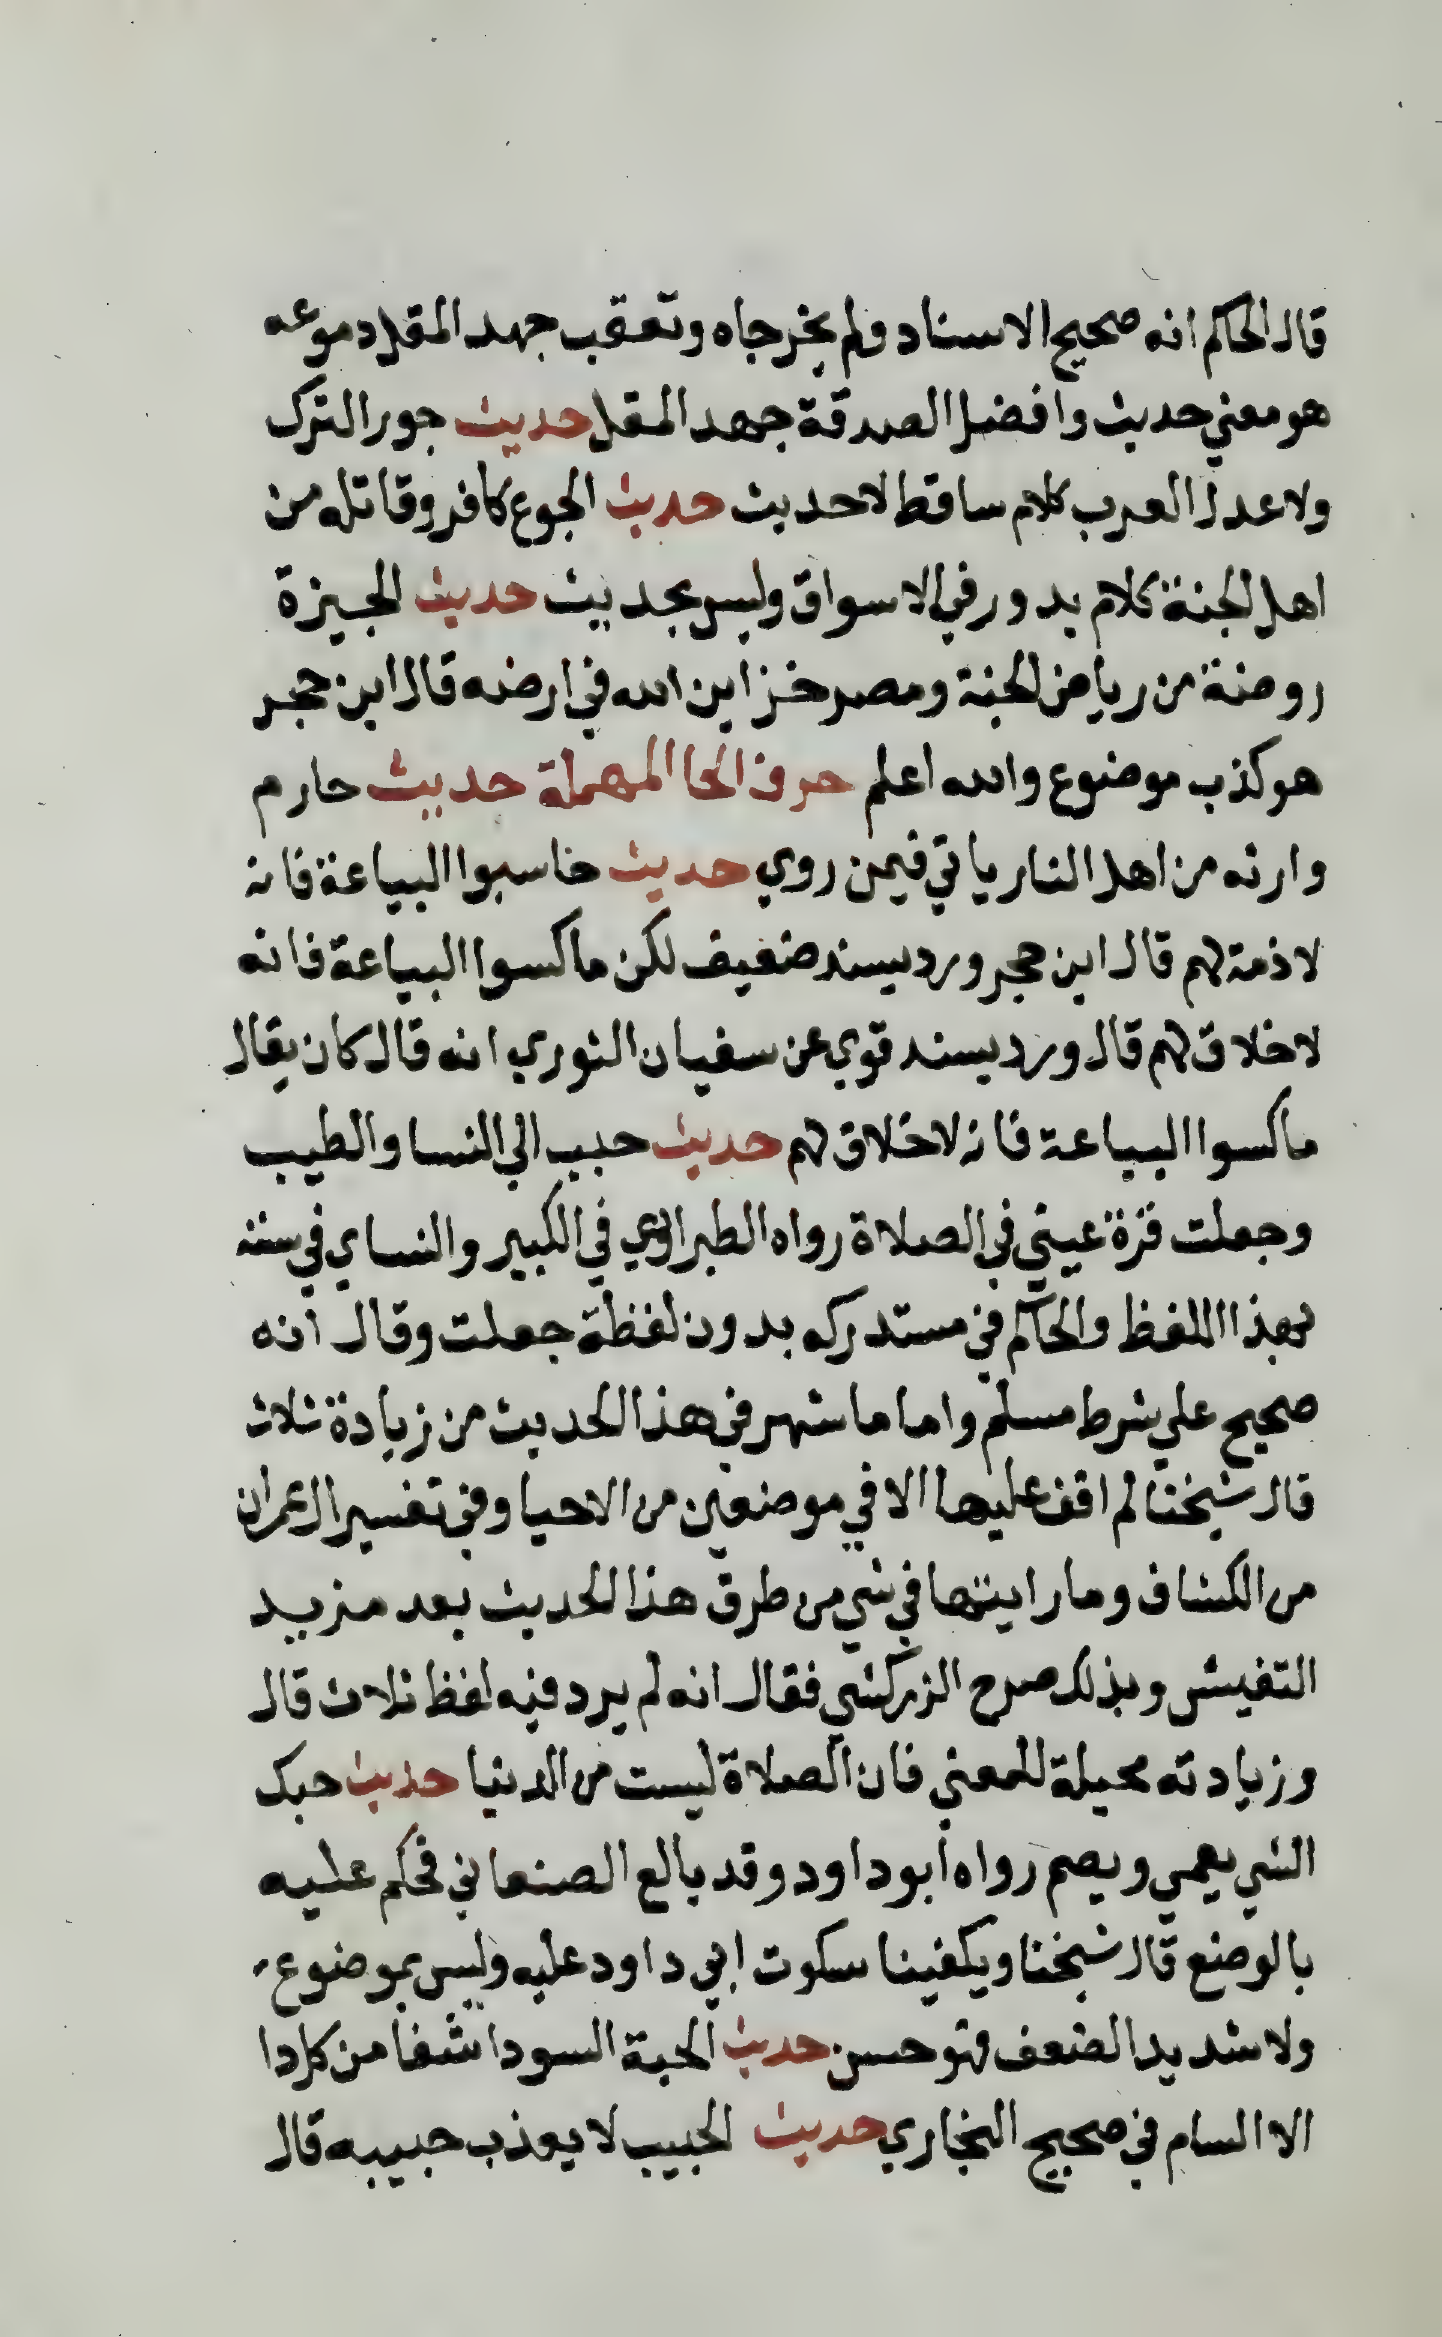 قال الحاكم انه صحيح الاسناد ولم يخرجاه وتعقب جهد المقل دموعه
هو معني حديث وافضل الصدقة جهد المقل حديث جور الترك
ولا عدل العرب كلام ساقط لا حديث حديث الجوع كافر وقاتله من
اهل الجنة كلام يدور في الاسواق وليس بحديث حديث الجيزة
روضة من رياض الجنة ومصر خزاين الله في ارضه قال ابن حجر
هو كذب موضوع والله اعلم حرف الحا المهملة حديث حارم
وارثه من اهل النار ياتي فيمن روي حديث حاسبوا البياعة فانه
لا ذمة لهم قال ابن حجر ورد بسند ضعيف لكن ماكسوا البياعة فانه
لا خلاق لهم قال ورد بسند قوي عن سفيان الثوري انه قال كان يقال
ماكسوا البياعة فانه لا خلاق لهم حديث حبب الي النسا والطيب
وجعلت قرة عيني في الصلاة رواه الطبراني في الكبير والنساي في سننه
بهذا اللفظ والحاكم في مستدركه بدون لفظة جعلت وقال انه
صحيح علي شرط مسلم واما ما شهر في هذا الحديث من زيادة ثلاث
قال شيخنا لم اقف عليها الا في موضعين من الاحيا وفي تفسير ال عمران
من الكشاف وما رايتها في شي من طرق هذا الحديث بعد مزيد
التفيش وبذلك صرح الزركشي فقال انه لم يرد فيه لفظ ثلاث قال
وزيادته محيلة للمعني فان الصلاة ليست من الدنيا حديث حبك
الشي يعمي ويصم رواه ابو داود وقد بالغ الصنعاني فحكم عليه
بالوضع قال شيخنا ويكفينا سكوت ابي داود عليه وليس بموضوع
ولا شديد الضعف فهو حسن حديث الحبة السودا شفا من كل دا
الا السام في صحيح البخاري حديث الحبيب لا يعذب حبيبه قال